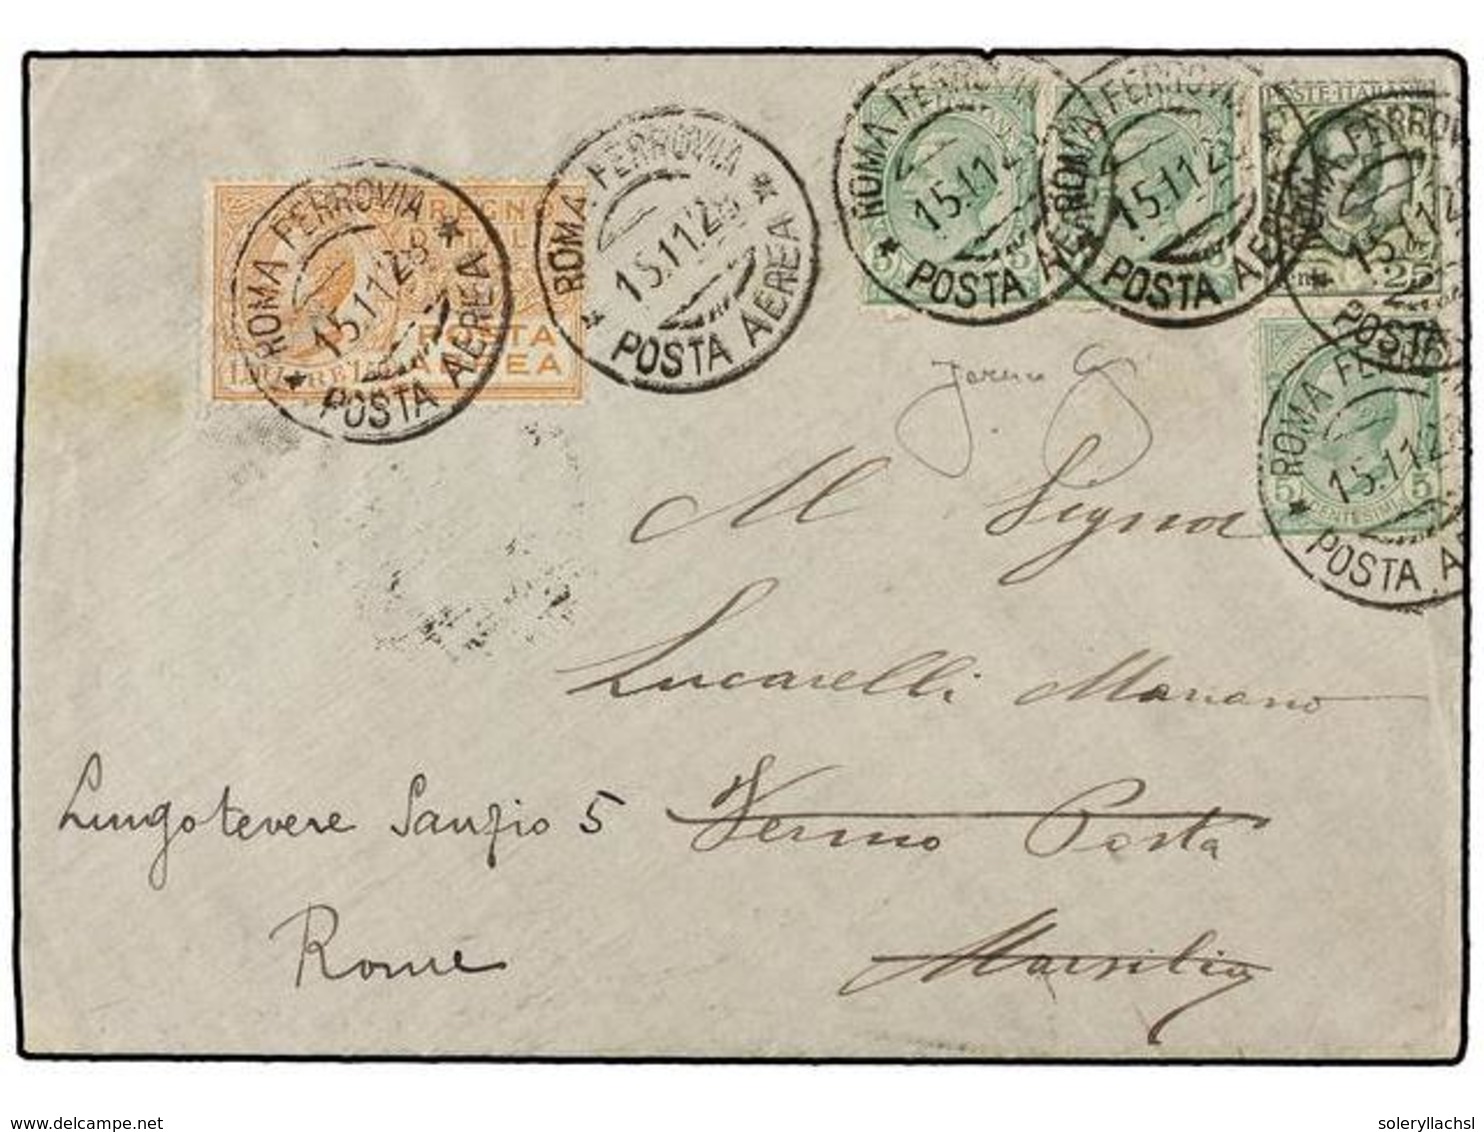 ROMA FERROVIA
15.11.28
POSTA AEREA
REGNO
POSTA
AEREA
ROMA FERROVIA
15.11.28
POSTA AEREA
ROMA FERROVIA
15.11.2
POSTA AEREA
5 5
ROMA FERROVIA
15.11.2
POSTA AEREA
POSTE·ITALIANE
ROMA FERROV
15.11.2
POSTA
25
ROMA FE
15.11.2
POSTA A
5 5
CENTESIMI
Al Signor
Lucarelli Mariano
Lungotevere Sanzio 5 Fermo Posta
Rome Marsilia
www.delcampe.net soleryllachsl